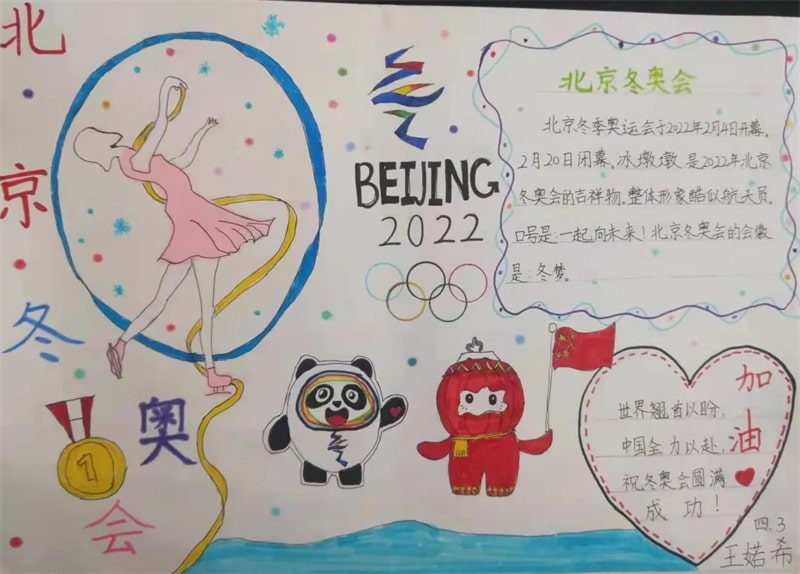 北京·冬奥会
1
BEIJING
2022
北京冬奥会
北京冬季奥运会于2022年2月4日开幕。
2月20日闭幕。冰墩墩是2022年北京
冬奥会的吉祥物。整体形象酷似航天员。
口号是:一起向未来!北京冬奥会的会徽
是:冬梦。
加油
世界翘首以盼,
中国全力以赴,
祝冬奥会圆满
成功!
四.3
王婼希